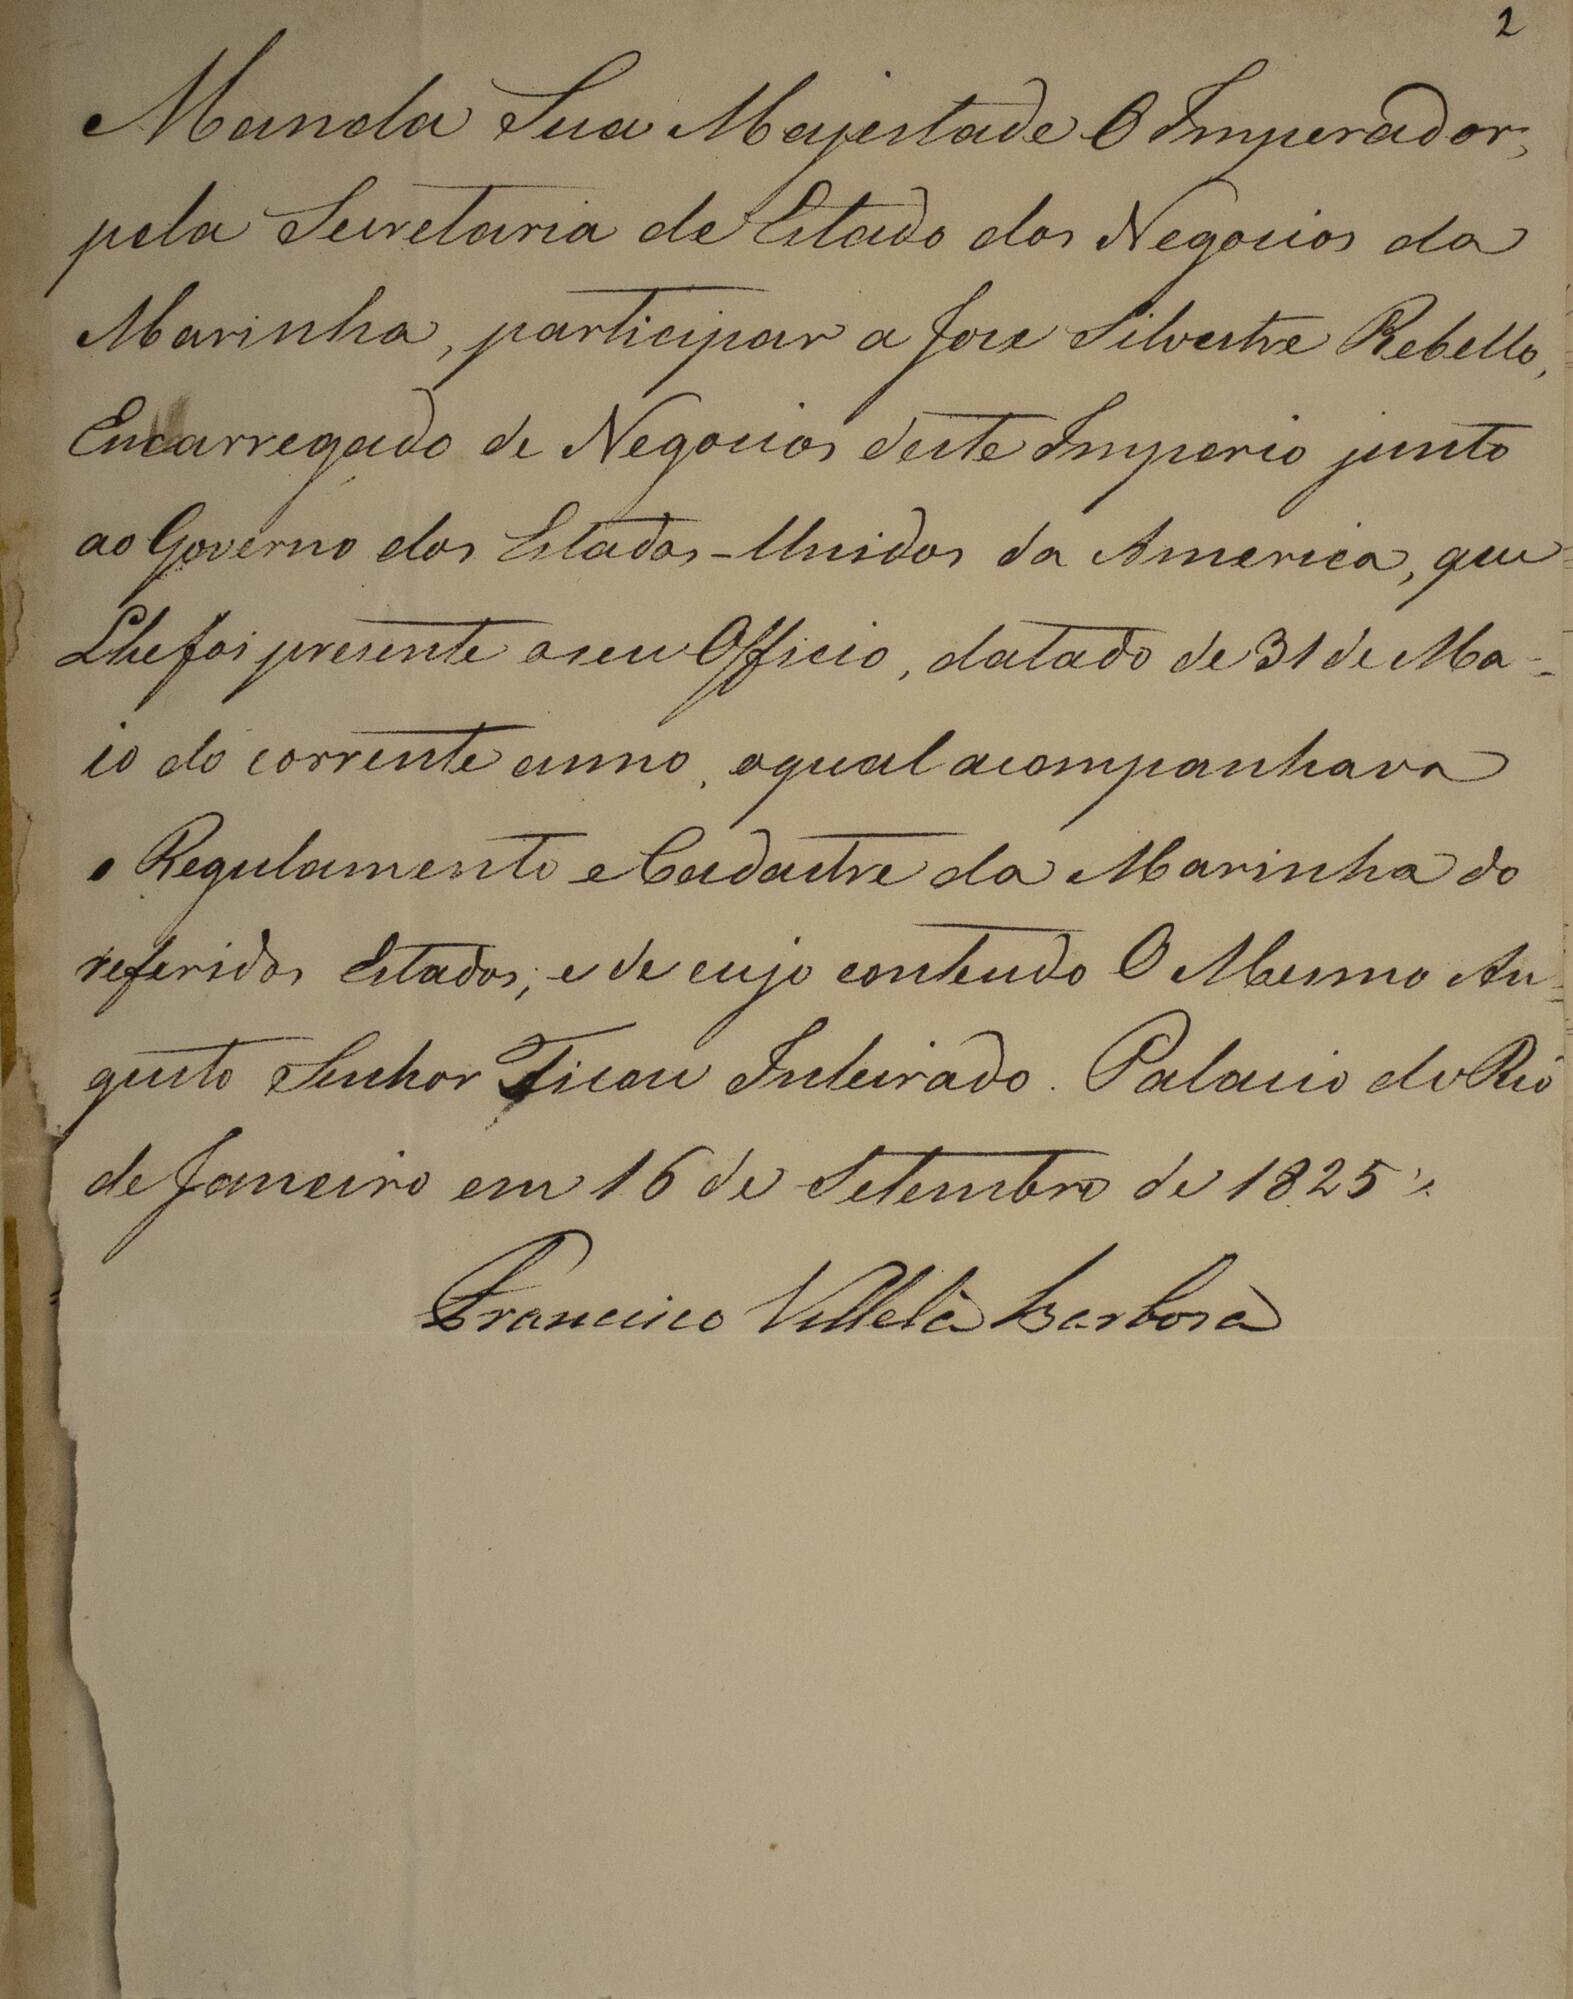 2
Manda Sua Majestade O Imperador,
pela Secretaria de Estado dos Negocios da
Marinha, participar a Jose Silvestre Rebello,
Encarregado de Negocios deste Imperio junto
ao Governo dos Estados-Unidos da America, que
Lhe foi presente o seu Officio, datado de 31 de Ma-
io do corrente anno, o qual acompanhava
o Regulamento e Cadastre da Marinha do
referidos Estados, e de cujo conteudo O Mesmo Au-
gusto Senhor Ficou Inteirado. Palacio do Rio
de Janeiro em 16 de Setembro de 1825
Francisco Villela Barbosa